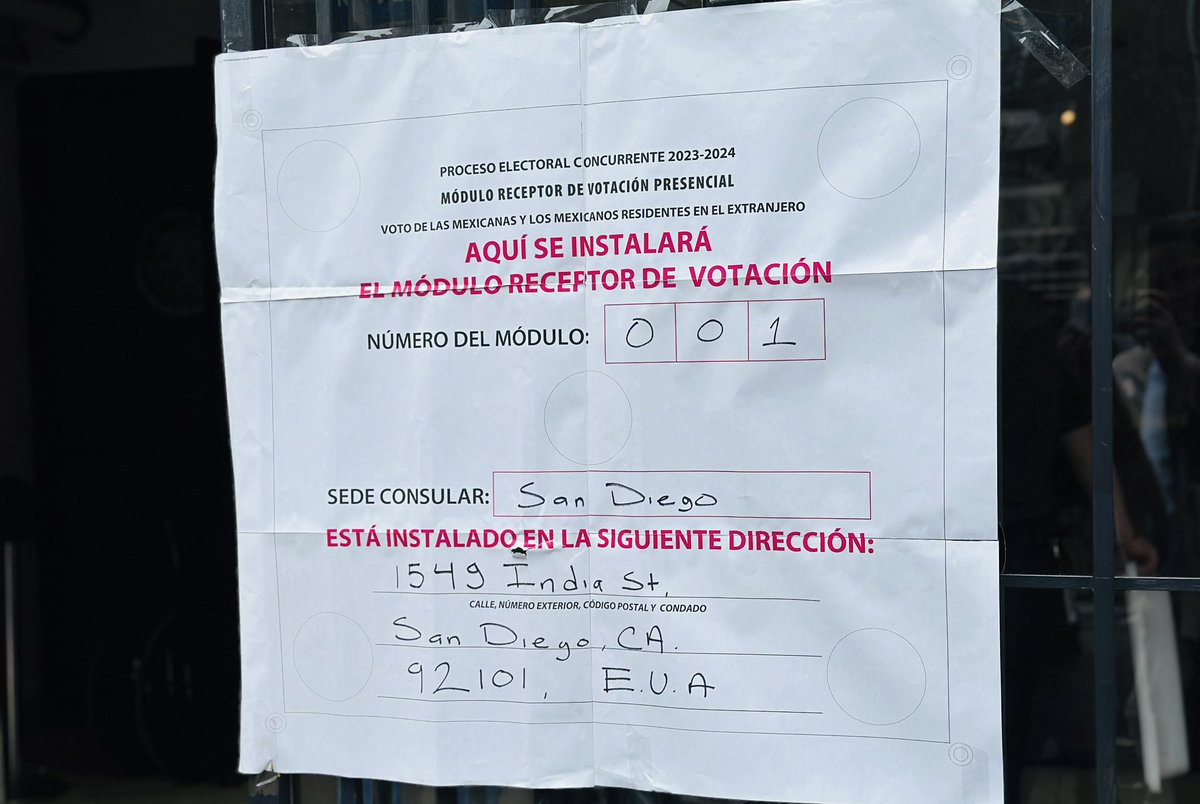 PROCESO ELECTORAL CONCURRENTE 2023-2024
MÓDULO RECEPTOR DE VOTACIÓN PRESENCIAL
VOTO DE LAS MEXICANAS Y LOS MEXICANOS RESIDENTES EN EL EXTRANJERO
AQUÍ SE INSTALARÁ
EL MÓDULO RECEPTOR DE VOTACIÓN
NÚMERO DEL MÓDULO: 0 0 1
SEDE CONSULAR: San Diego
ESTÁ INSTALADO EN LA SIGUIENTE DIRECCIÓN:
1549 India St,
CALLE, NÚMERO EXTERIOR, CÓDIGO POSTAL Y CONDADO
San Diego, CA.
92101, E.U.A